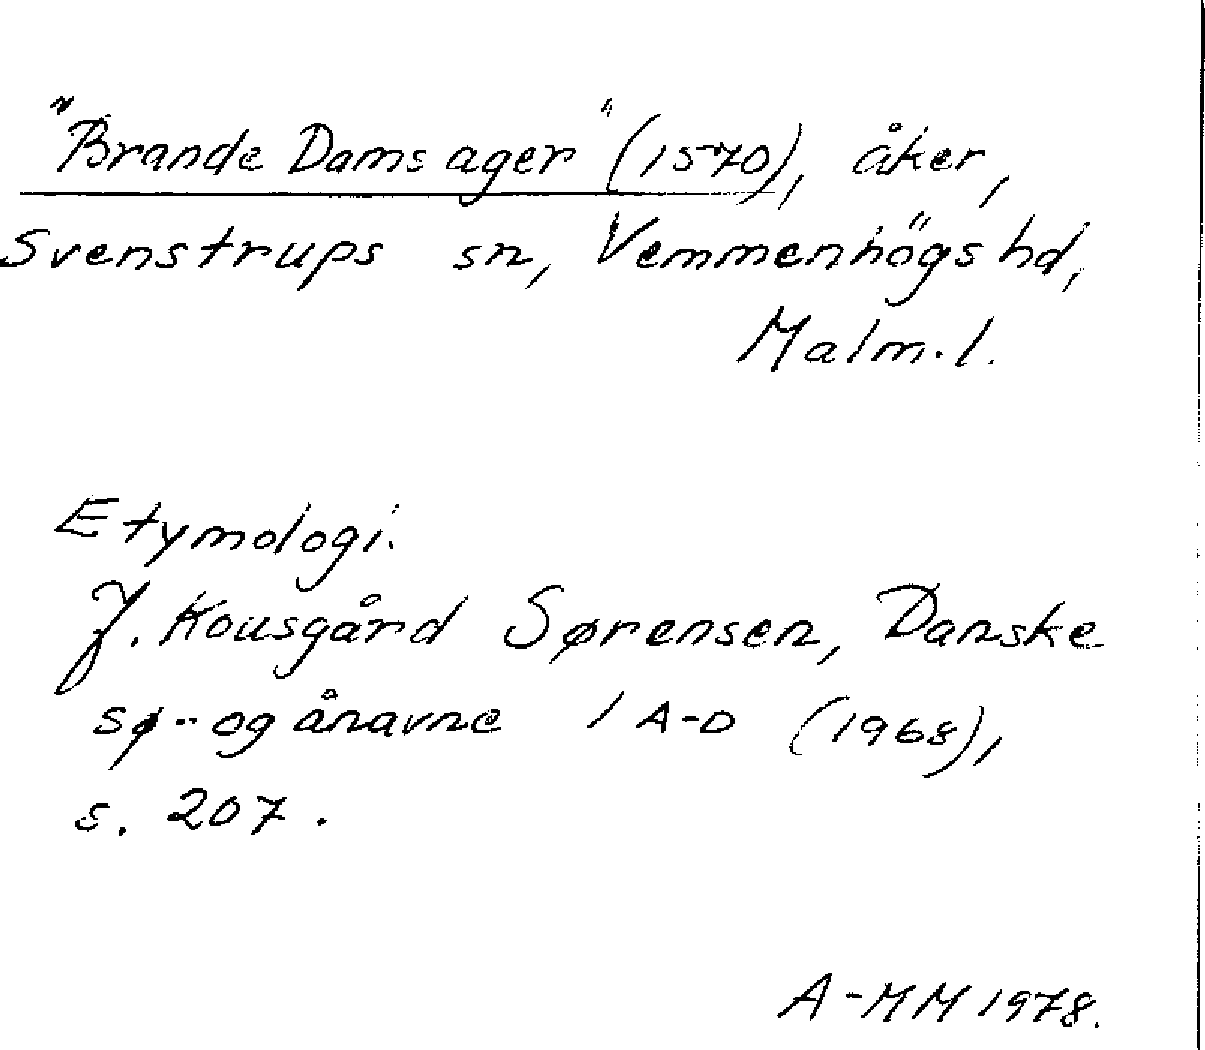 "Brande Dams ager" (1570), åker,
Svenstrups sn, Vemmenhögs hd,
Malm.l.
Etymologi.
J. Kousgård Sørensen, Danske
sø- og ånavne 1 A-D (1968),
s. 207.
A-MM 1978.